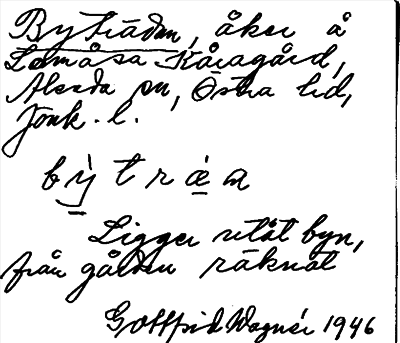 Byträdan, åker å
Lemåsa Kåragård,
Alseda sn, Östra hd,
Jönk. l.
bỳträ̀a
Ligger utåt byn,
från gården räknat
Gottfrid Wagnér 1946